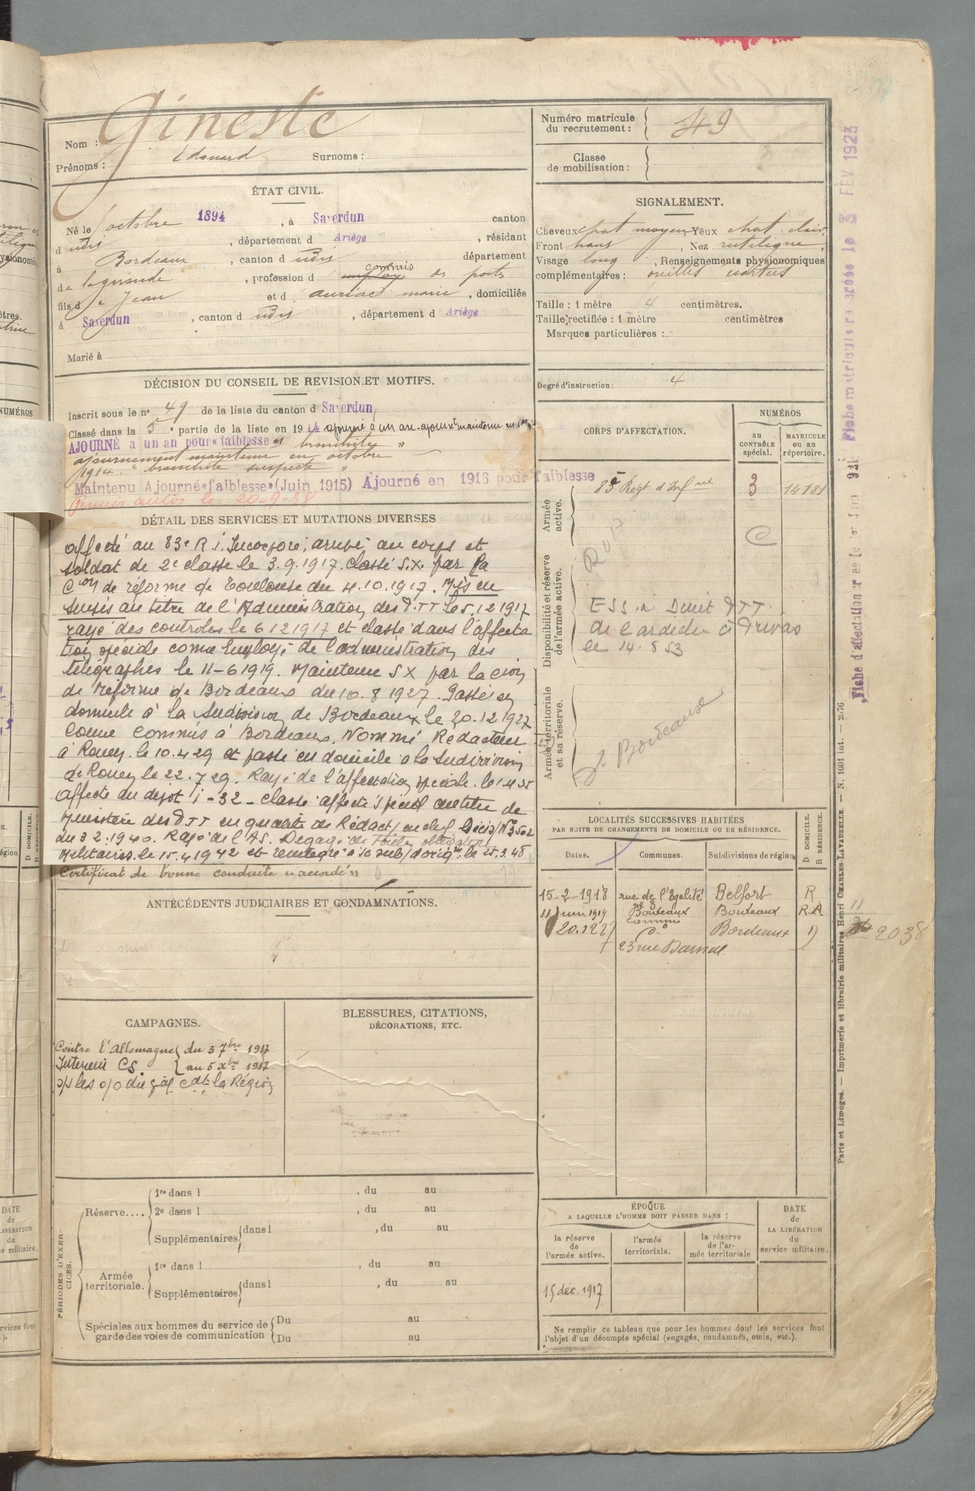 Nom : Gineste
Prénoms : Edouard Surnoms :
Numéro matricule du recrutement : 49
Classe de mobilisation :
ÉTAT CIVIL.
Né le octobre 1894, à Saverdun canton
d udis, département d Ariège, résidant
à Bordeaux, canton d udis département
de la gironde, profession d commis des postes
fils d e Jean et d auriac marie, domiciliés
à Saverdun, canton d udis, département d Ariège
Marié à
SIGNALEMENT.
Cheveux chat moyen Yeux chat. clair
Front haus, Nez rectiligne,
Visage long, Renseignements physionomiques
complémentaires :
Taille : 1 mètre 4 centimètres.
Taille rectifiée : 1 mètre centimètres
Marques particulières :
Degré d'instruction : 4
DÉCISION DU CONSEIL DE REVISION ET MOTIFS.
Inscrit sous le nº 49 de la liste du canton d Saverdun
Classé dans la 5e partie de la liste en 1914 ajourné à un an
AJOURNÉ à un an pour «faiblesse et bronchite»
ajournement maintenu en octobre
1914 "bronchite suspecte"
Maintenu Ajourné «faiblesse» (Juin 1915) Ajourné en 1916 pour faiblesse
20-9-58
DÉTAIL DES SERVICES ET MUTATIONS DIVERSES
affecté au 83e R.I. Incorporé, arrivé au corps et
soldat de 2e classe le 3.9.1917. Classé S.X. par la
Con de réforme de Toulouse du 4.10.1917. Mis en
sursis au titre de l'Administration des P.T.T le 5.12.1917
rayé des controles le 6 12 1917 et classé dans l'affecta
tion spéciale comme Employé de l'administration des
télégraphes le 11-6 1919. Maintenu SX par la Cion
de réforme de Bordeaux du 10.8 1927. Passé en
domicile à la Subdivision de Bordeaux le 20.12 1927
comme commis à Bordeaux. Nommé Rédacteur
à Rouen le 10.4 29 et passé en domicile à la Subdivision
de Rouen le 22.7 29. Rayé de l'affectation spéciale
affecté au dépot i-32 - classé affecté spécial au titre du
Ministère des PTT en qualité de Rédact/ en chef
du 3 2.1940. Rayé de l'AS. Dégagé des
Militaires le 15.4 1942
Certificat de bonne conduite "accordé"
CORPS D'AFFECTATION.
NUMÉROS
AU CONTRÔLE spécial.
MATRICULE OU AU répertoire.
Armée active.
83e Régt d'Infrie 3 14181
C
Disponibilité et réserve de l'armée active.
de l'ardèche à Privas
le 14.8 53
Armée territoriale et sa réserve.
Bordeaux
LOCALITÉS SUCCESSIVES HABITÉES
PAR SUITE DE CHANGEMENTS DE DOMICILE OU DE RÉSIDENCE.
Dates. Communes. Subdivisions de région. D. DOMICILE. R. RÉSIDENCE.
15-2-1918 rue de l'Egalité Belfort R
11 Juin 1919 Bordeaux Bordeaux R.A
commis
20.12 27 Bordeaux D
23 rue
ANTÉCÉDENTS JUDICIAIRES ET CONDAMNATIONS.
CAMPAGNES.
Contre l'Allemagne du 3 7bre 1917
Intérieur CS. au 5 Xbre 1917
s/s les o/o du gal Cdt la Région
BLESSURES, CITATIONS, DÉCORATIONS, ETC.
PÉRIODES D'EXERCICES.
Réserve.... 1re dans l , du au
2e dans l , du au
Supplémentaires dans l , du au
Armée territoriale. 1re dans l , du au
Supplémentaires dans l , du au
Spéciales aux hommes du service de garde des voies de communication Du au
Du au
ÉPOQUE
A LAQUELLE L'HOMME DOIT PASSER DANS :
la réserve de l'armée active.
l'armée territoriale.
la réserve de l'armée territoriale
DATE de LA LIBÉRATION du service militaire.
15 déc. 1917
Ne remplir ce tableau que pour les hommes dont les services font
l'objet d'un décompte spécial (engagés, condamnés, omis, etc.).
Paris et Limoges. — Imprimerie et librairie militaires Henri CHARLES-LAVAUZELLE. — N. 1001 int. — 2076
Fiche matricule créée le 3 FEV 1923
Fiche d'affectation
2038